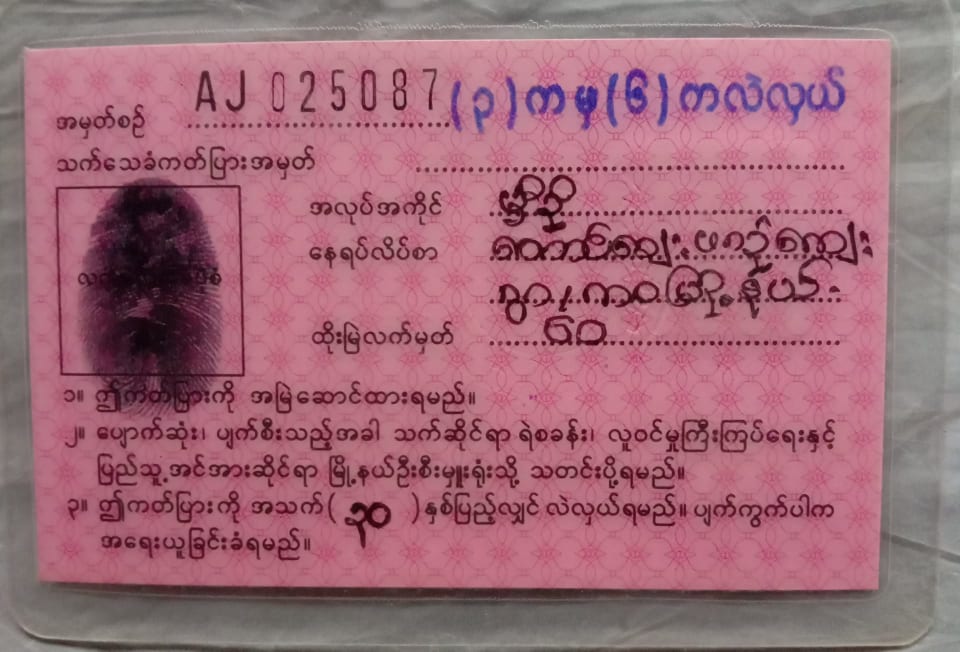 အမှတ်စဉ် AJ 025087 (၃) ကမှ (၆) ကလဲလှယ်
သက်သေခံကတ်ပြားအမှတ်
အလုပ်အကိုင် မှီခို
နေရပ်လိပ်စာ
မြို့နယ်
ထိုးမြဲလက်မှတ်
၁။ ဤကတ်ပြားကို အမြဲဆောင်ထားရမည်။
၂။ ပျောက်ဆုံး၊ ပျက်စီးသည့်အခါ သက်ဆိုင်ရာ ရဲစခန်း၊ လူဝင်မှုကြီးကြပ်ရေးနှင့်
ပြည်သူ့အင်အားဆိုင်ရာ မြို့နယ်ဦးစီးမှူးရုံးသို့ သတင်းပို့ရမည်။
၃။ ဤကတ်ပြားကို အသက် ( ၃၀ ) နှစ်ပြည့်လျှင် လဲလှယ်ရမည်။ ပျက်ကွက်ပါက
အရေးယူခြင်းခံရမည်။